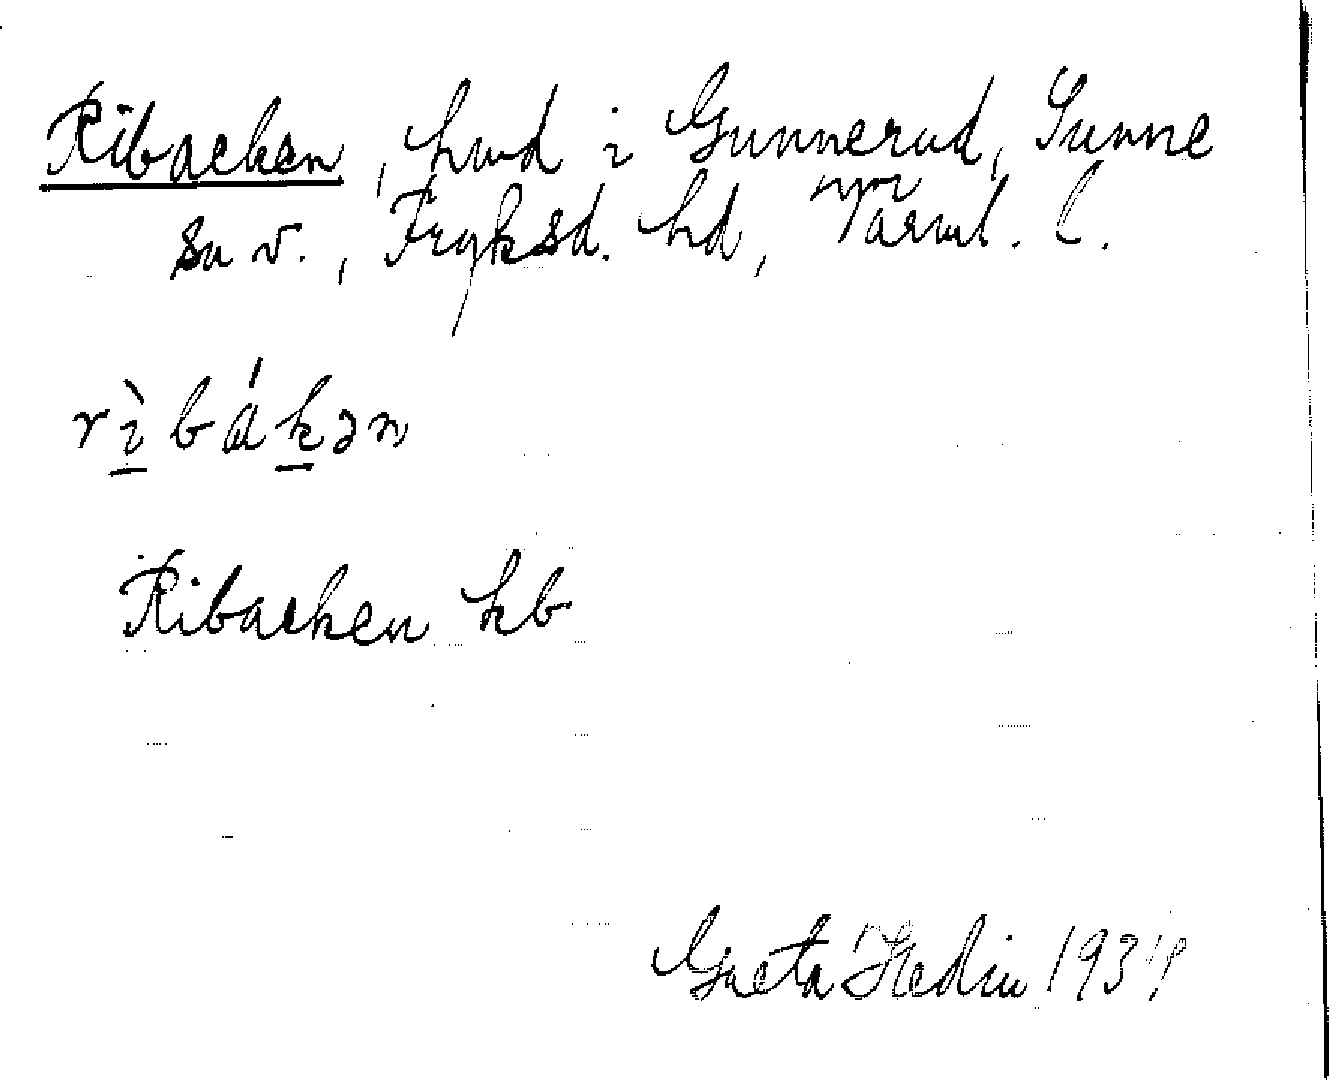 Ribacken, hmd i Gunnerud, Sunne
sn v., Fryksd. hd, Värml. l.
rìbákən
Ribacken kb
Greta Hedin